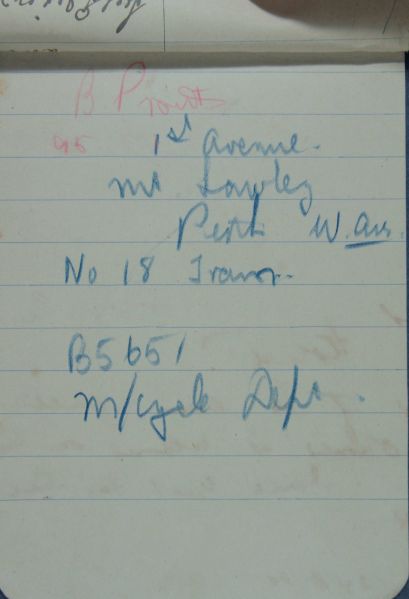 B P
95 1st Avenue.
Mt Lawley
Perth W. Aus.
No 18 Tram.
B5651
M/cycle Dept.